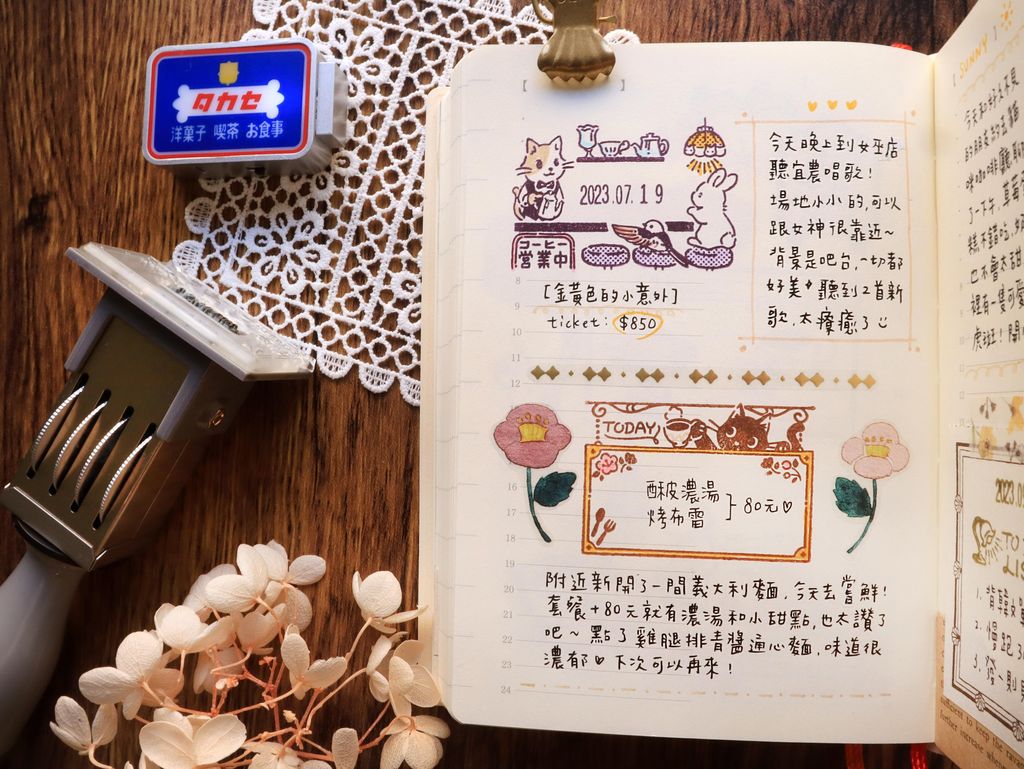 タカセ
洋菓子 喫茶 お食事
2023.07.19
コーヒー
営業中
[金黃色的小意外]
ticket: $850
今天晚上到女巫店
聽宜農唱歌!
場地小小的,可以
跟女神很靠近~
背景是吧台,一切都
好美 聽到2首新
歌,太療癒了
8
9
10
11
12
TODAY
酥皮濃湯
烤布蕾
} 80元♡
16
17
18
附近新開了一間義大利麵,今天去嘗鮮!
套餐+80元就有濃湯和小甜點,也太讚了
吧~ 點了雞腿排青醬通心麵,味道很
濃郁♥下次可以再來!
20
21
22
23
24
SUNNY
今天和好久不見